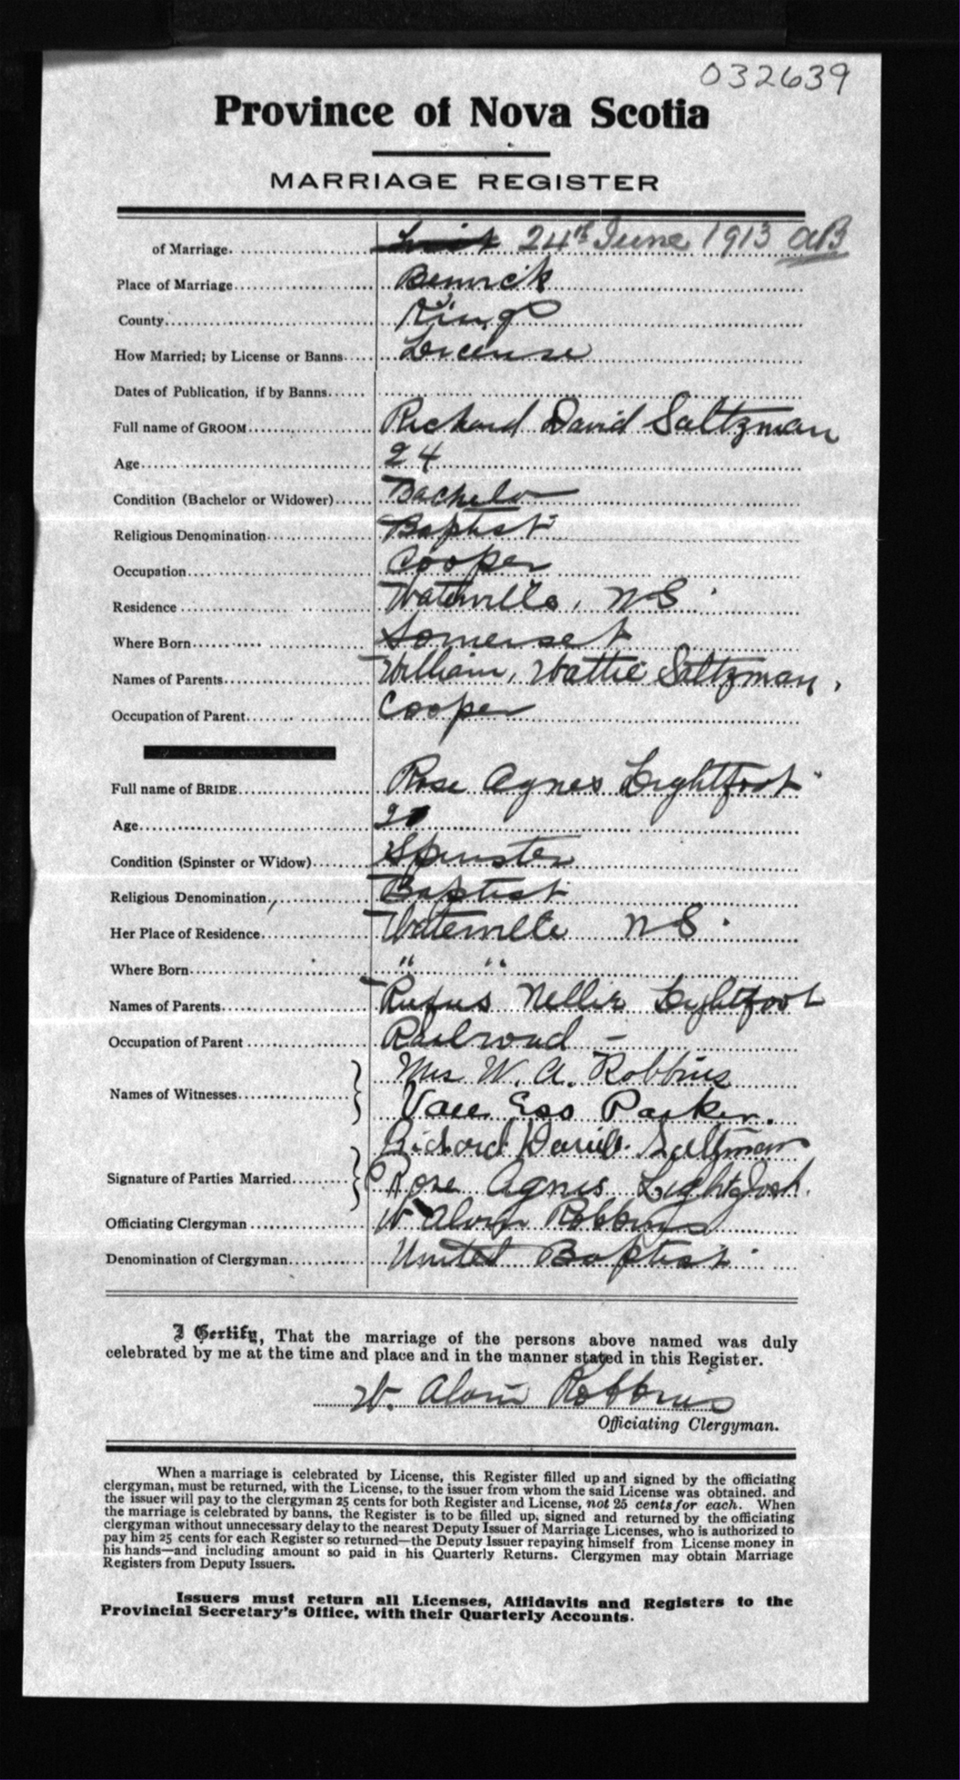 032639
Province of Nova Scotia
MARRIAGE REGISTER
of Marriage 24th June 1913 AB
Place of Marriage Berwick
County Kings
How Married; by License or Banns License
Dates of Publication, if by Banns
Full name of GROOM Richard David Saltzman
Age 24
Condition (Bachelor or Widower) Bachelor
Religious Denomination Baptist
Occupation Cooper
Residence Waterville, NS
Where Born Somerset
Names of Parents William, Wattie Saltzman,
Occupation of Parent Cooper
Full name of BRIDE Rose Agnes Lightfoot
Age
Condition (Spinster or Widow) Spinster
Religious Denomination Baptist
Her Place of Residence Waterville NS
Where Born " "
Names of Parents Rufus Nellie Lightfoot
Occupation of Parent Railroad -
Mrs W. A. Robbins
Names of Witnesses
Parker.
Richard David Saltzman
Signature of Parties Married
Rose Agnes Lightfoot.
Officiating Clergyman W Alvin Robbins
Denomination of Clergyman United Baptist
I Certify, That the marriage of the persons above named was duly
celebrated by me at the time and place and in the manner stated in this Register.
W. Alvin Robbins
Officiating Clergyman.
When a marriage is celebrated by License, this Register filled up and signed by the officiating
clergyman, must be returned, with the License, to the issuer from whom the said License was obtained. and
the issuer will pay to the clergyman 25 cents for both Register and License, not 25 cents for each. When
the marriage is celebrated by banns, the Register is to be filled up, signed and returned by the officiating
clergyman without unnecessary delay to the nearest Deputy Issuer of Marriage Licenses, who is authorized to
pay him 25 cents for each Register so returned—the Deputy Issuer repaying himself from License money in
his hands—and including amount so paid in his Quarterly Returns. Clergymen may obtain Marriage
Registers from Deputy Issuers.
Issuers must return all Licenses, Affidavits and Registers to the
Provincial Secretary's Office, with their Quarterly Accounts.